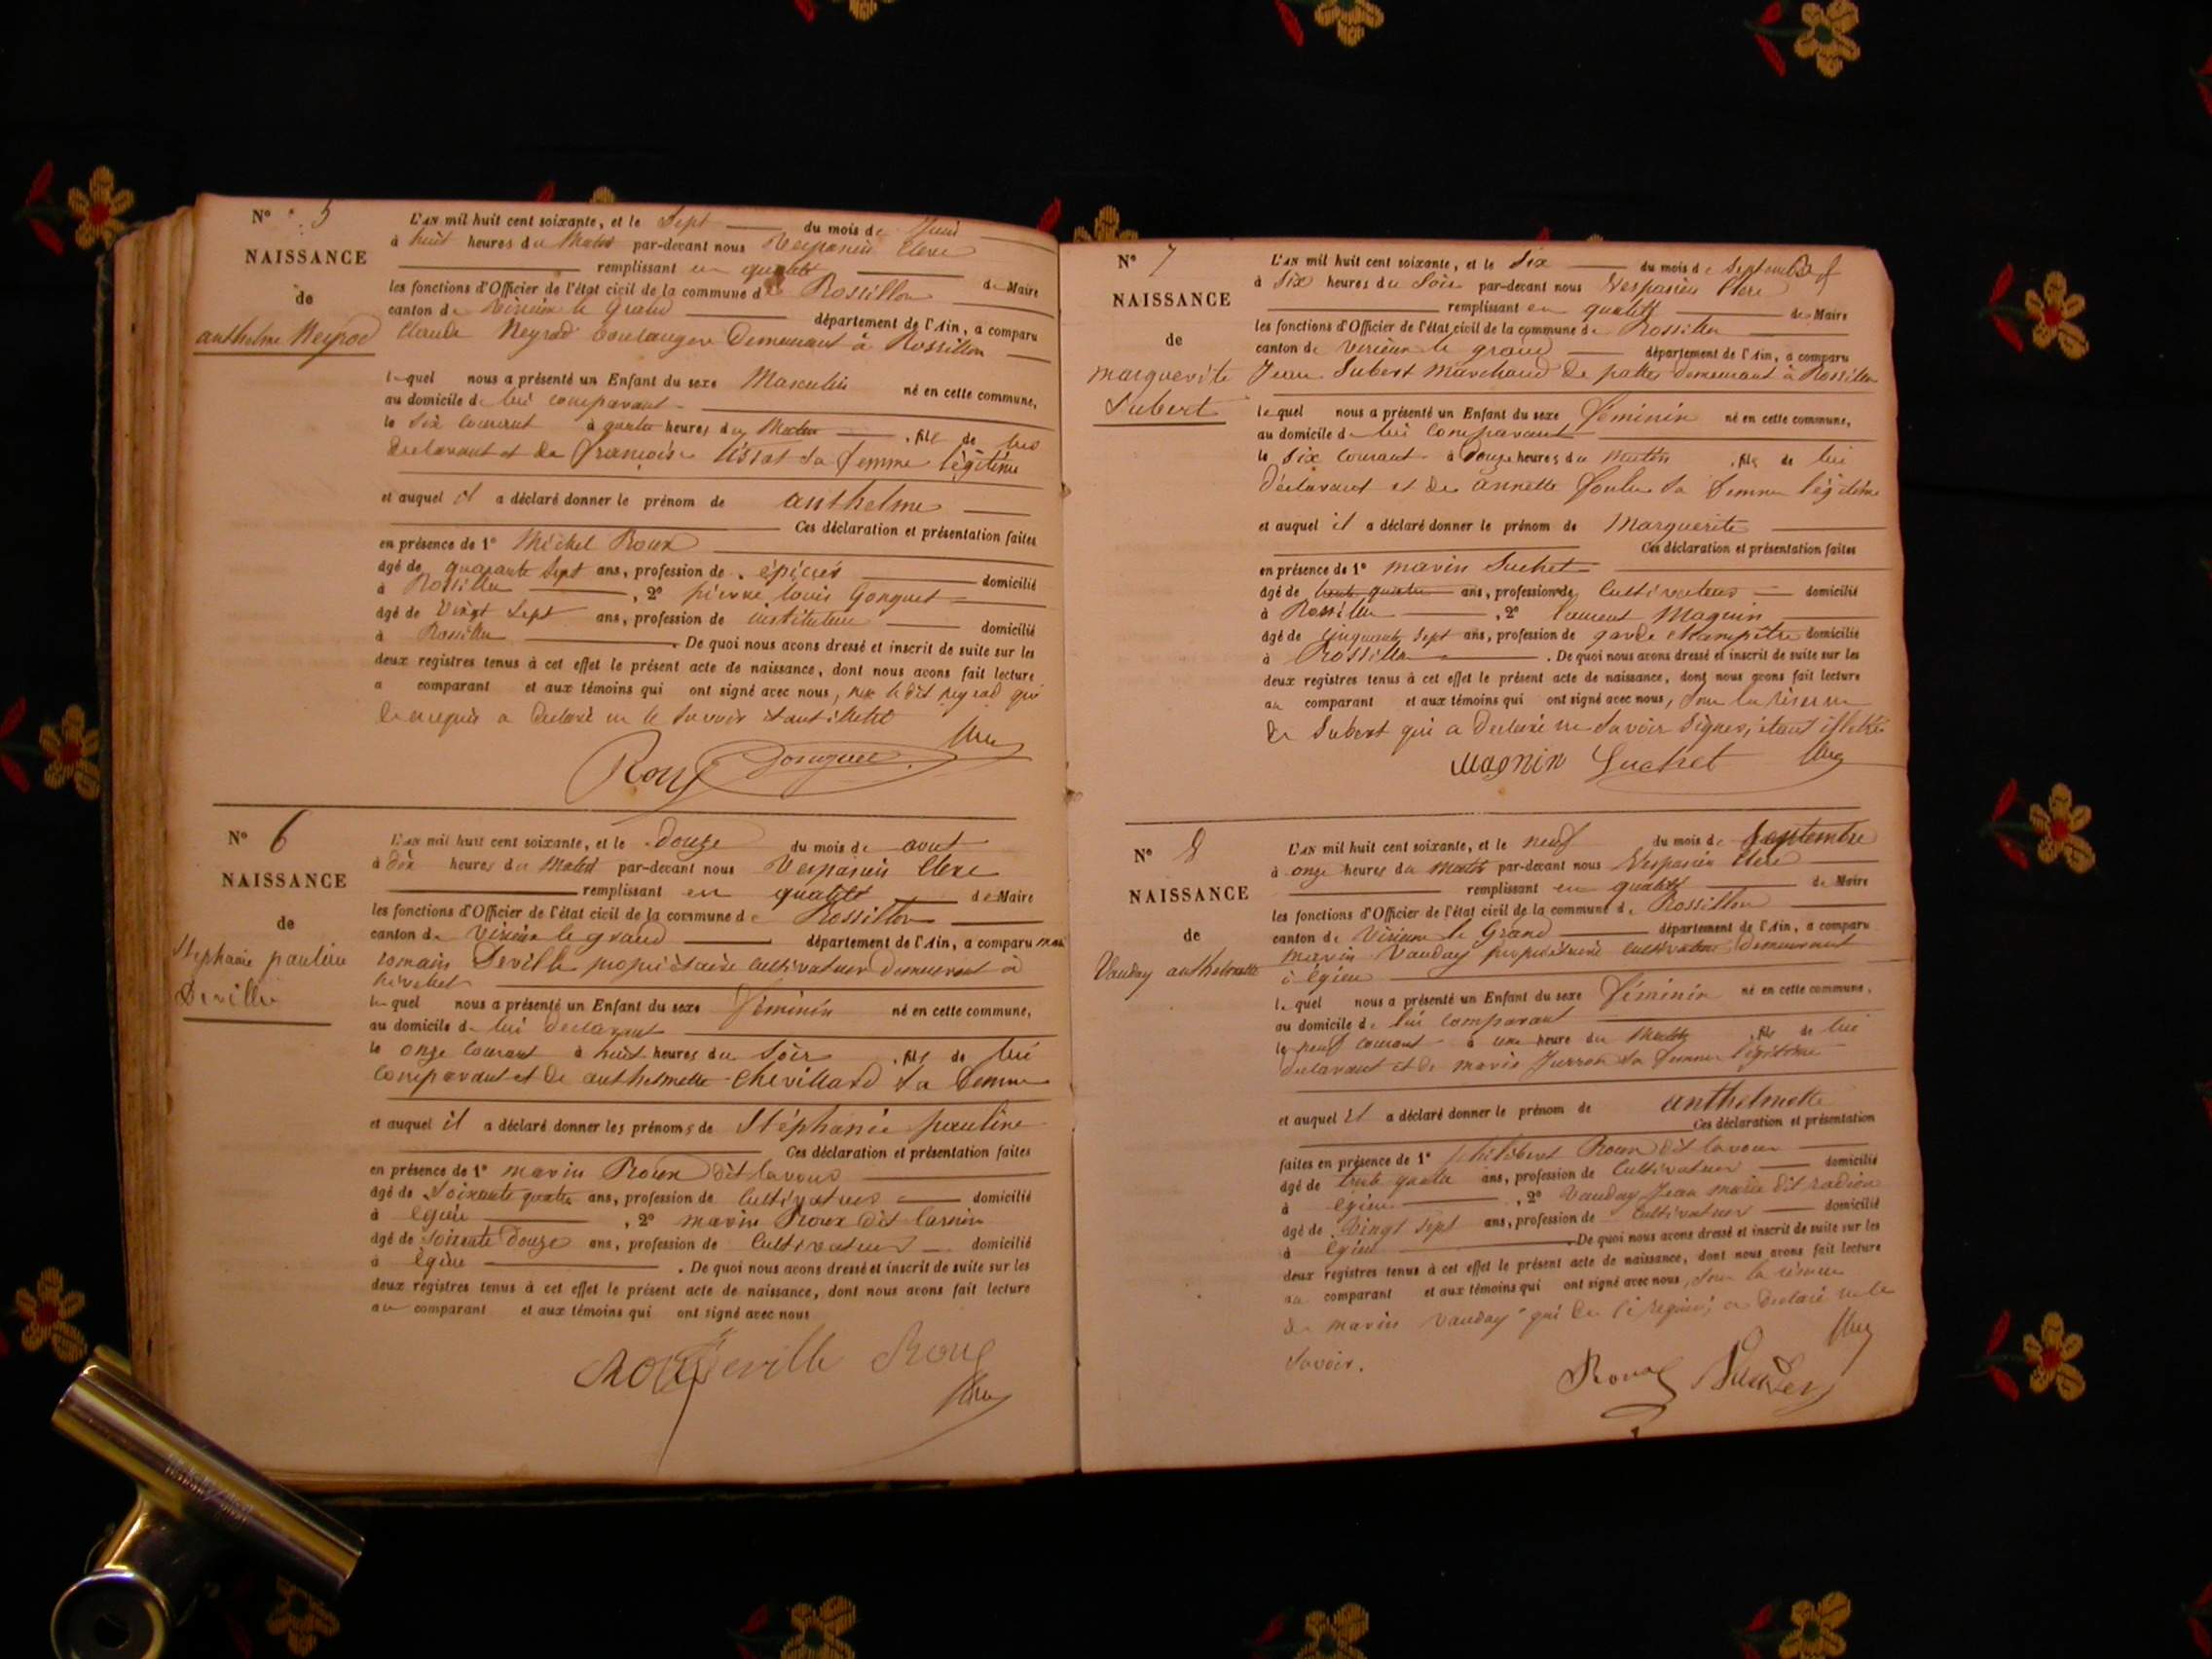 N° 5
NAISSANCE
de
anthelme Neyrod
L'AN mil huit cent soixante, et le Sept du mois de Juin
à huit heures du Matin par-devant nous Vespasien Clerc
remplissant en qualité de Maire
les fonctions d'Officier de l'état civil de la commune de Rossillon
canton de Virieu le Grand département de l'Ain, a comparu
Claude Neyrod boulanger Demeurant à Rossillon
lequel nous a présenté un Enfant du sexe Masculin né en cette commune,
au domicile de lui comparant
le Six courant à quatre heures du Matin, fils de lui
Declarant et de Françoise sa femme légitime
et auquel il a déclaré donner le prénom de anthelme
Ces déclaration et présentation faites
en présence de 1° Michel Roux
âgé de quarante Sept ans, profession de épicier domicilié
à Rossillon, 2° pierre louis Gonguet
âgé de Vingt Sept ans, profession de instituteur domicilié
à Rossillon. De quoi nous avons dressé et inscrit de suite sur les
deux registres tenus à cet effet le présent acte de naissance, dont nous avons fait lecture
a comparant et aux témoins qui ont signé avec nous, le dit Neyrod qui
De requis a Declaré ne le Savoir étant illetré
Roux Gonguet Clerc
N° 6
NAISSANCE
de
Stephanie pauline
Deville
L'AN mil huit cent soixante, et le Douze du mois de aout
à dix heures du Matin par-devant nous Vespasien Clerc
remplissant en qualité de Maire
les fonctions d'Officier de l'état civil de la commune de Rossillon
canton de Virieu le grand département de l'Ain, a comparu
romain Deville propriétaire cultivateur demeurant à
lequel nous a présenté un Enfant du sexe Féminin né en cette commune,
au domicile de lui declarant
le onze courant à huit heures du Soir, fils de lui
comparant et de anthelmette Chevillard sa femme
et auquel il a déclaré donner les prénoms de Stéphanie pauline
Ces déclaration et présentation faites
en présence de 1° marin Roux dit lavoux
âgé de Soixante quatre ans, profession de Cultivateur domicilié
à Egieu, 2° marin Roux dit
âgé de Soixante Douze ans, profession de Cultivateur domicilié
à Egieu. De quoi nous avons dressé et inscrit de suite sur les
deux registres tenus à cet effet le présent acte de naissance, dont nous avons fait lecture
au comparant et aux témoins qui ont signé avec nous
Roux Deville Roux
Clerc
N° 7
NAISSANCE
de
marguerite
Subert
L'AN mil huit cent soixante, et le Six du mois de Septembre
à Six heures du Soir par-devant nous Vespasien Clerc
remplissant en qualité de Maire
les fonctions d'Officier de l'état civil de la commune de Rossillon
canton de Virieu le grand département de l'Ain, a comparu
Jean Subert Marchand de pattes demeurant à Rossillon
lequel nous a présenté un Enfant du sexe Féminin né en cette commune,
au domicile de lui Comparant
le Six courant à Douze heures du Matin, fils de lui
Déclarant et de annette sa femme légitime
et auquel il a déclaré donner le prénom de Marguerite
Ces déclaration et présentation faites
en présence de 1° marin Suchet
âgé de trente quatre ans, profession de Cultivateur domicilié
à Rossillon, 2° laurent Magnin
âgé de Cinquante Sept ans, profession de garde champêtre domicilié
à Rossillon. De quoi nous avons dressé et inscrit de suite sur les
deux registres tenus à cet effet le présent acte de naissance, dont nous avons fait lecture
au comparant et aux témoins qui ont signé avec nous, sous la réserve
de Subert qui a Declaré ne Savoir Signer, étant illetré
Magnin Suchet Clerc
N° 8
NAISSANCE
de
Vauday anthelmette
L'AN mil huit cent soixante, et le neuf du mois de Septembre
à onze heures du Matin par-devant nous Vespasien Clerc
remplissant en qualité de Maire
les fonctions d'Officier de l'état civil de la commune de Rossillon
canton de Virieu le Grand département de l'Ain, a comparu
marin Vauday propriétaire cultivateur Demeurant
à Egieu
lequel nous a présenté un Enfant du sexe Féminin né en cette commune,
au domicile de lui comparant
le neuf courant à une heure du Matin, fils de lui
declarant et de marie Jurron sa femme légitime
et auquel il a déclaré donner le prénom de anthelmette
Ces déclaration et présentation
faites en présence de 1° philibert Roux dit lavoux
âgé de trente quatre ans, profession de Cultivateur domicilié
à Egieu, 2° Vauday Jean marie dit
âgé de Vingt Sept ans, profession de Cultivateur domicilié
à Egieu. De quoi nous avons dressé et inscrit de suite sur les
deux registres tenus à cet effet le présent acte de naissance, dont nous avons fait lecture
au comparant et aux témoins qui ont signé avec nous, sous la réserve
de marin Vauday qui De ce requis, a Declaré ne le
Savoir. Clerc
Roux Vauday